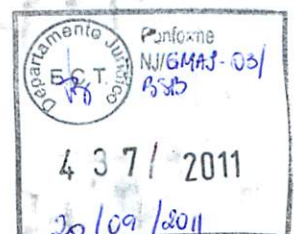 Departamento Jurídico
E.C.T.
Conforme
NJ/GMAJ-03/
BSB
437/ 2011
20/09/2011